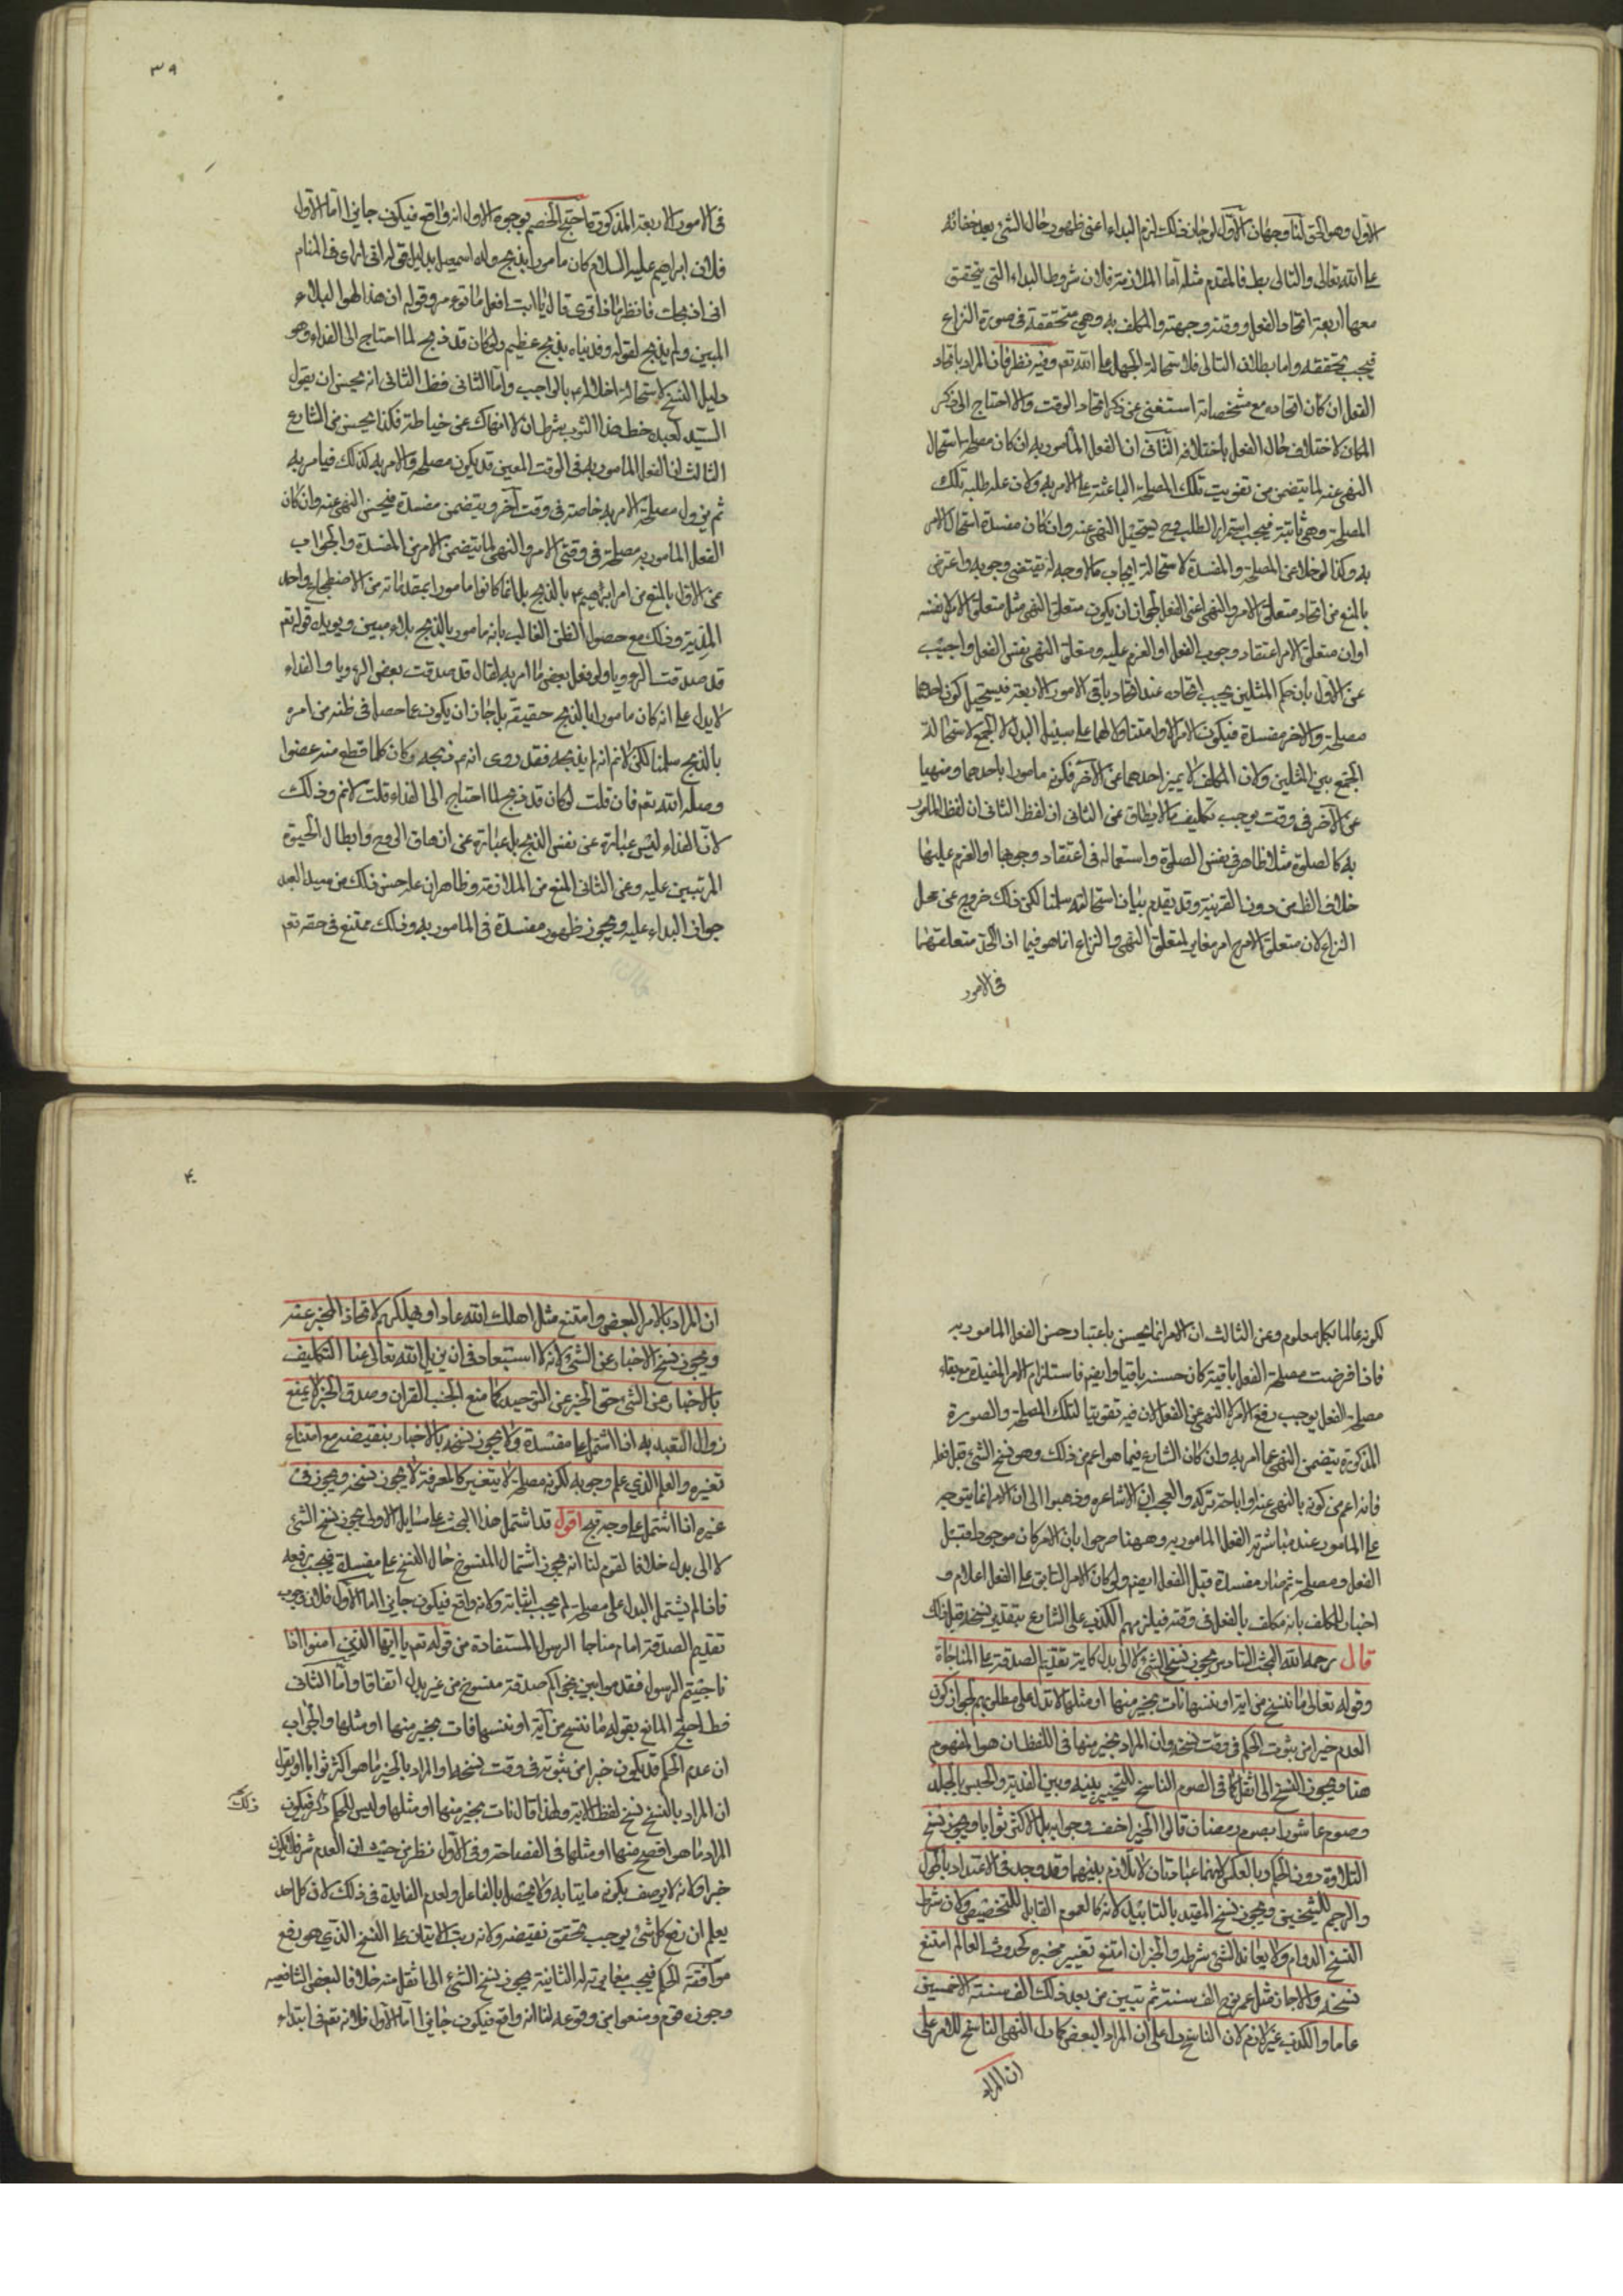 الاول وهو الحق لنا وجهان الاول لو جاز ذلك لزم البداء اعنى ظهور حال الشئ بعد خفائه
على الله تعالى والتالى بط فالمقدم مثله اما الملازمة فلان شروط البداء التى يتحقق
معها اربعة اتحاد الفعل ووقته وجهته والمكلف به وهى متحققة فى صورة النزاع
فيجب تحققه واما بطلان التالى فلاستحالة الجهل على الله تعم وفيه نظر فان المراد باتحاد
الفعل ان كان اتحاده مع مشخصاته استغنى عن ذكر اتحاد الوقت والا احتاج الى ذكر
المكان لاختلاف حال الفعل باختلافه الثانى ان الفعل المامور به ان كان مصلحة استحال
النهى عنه لما يتضمن من تفويت تلك المصلحة الباعثة على الامر به ولان علة طلبه تلك
المصلحة وهى ثابتة فيجب استمرار الطلب وح يستحيل النهى عنه وان كان مفسدة استحال الامر
به وكذا لو خلا عن المصلحة والمفسدة لاستحالة ايجاب ما لا وجه له يقتضى وجوبه واعترض
بالمنع من اتحاد متعلق الامر والنهى اعنى الفعل لجواز ان يكون متعلق النهى مثل متعلق الامر لا نفسه
او ان متعلق الامر اعتقاد وجوب الفعل او العزم عليه ومتعلق النهى نفس الفعل واجيب
عن الاول بان حكم المثلين يجب اتحاده عند اتحاد باقى الامور الاربعة فيستحيل كون احدهما
مصلحة والاخر مفسدة فيكون الامر الاول متناولا لهما على سبيل البدل لا الجمع لاستحالة
الجمع بين المثلين ولان المكلف لا يميز احدهما عن الآخر فكونه مامورا باحدهما ومنهيا
عن الآخر فى وقت يوجب تكليف ما لا يطاق عن الثانى ان لفظ الثانى ان لفظ المامور
به كالصلوة مثلا ظاهر فى نفس الصلوة واستعماله فى اعتقاد وجوبها او العزم عليها
خلاف الظ من دون القرينة وقد تقدم بيان استحالته سلمنا لكن ذلك خروج عن محل
النزاع لان متعلق الامر ح امر مغاير لمتعلق النهى والنزاع انما هو فيما اذا اتحد متعلقهما
فى الامور
٣٩
فى الامور الاربعة المذكورة احتج الخصم بوجوه الاول انه واقع فيكون جايزا اما الاول
فلان ابراهيم عليه السلام كان مامورا بذبح ولده اسمعيل بدليل قوله انى ارى فى المنام
انى اذبحك فانظر ماذا ترى قال يا ابت افعل ما تؤمر وقوله ان هذا لهو البلاء
المبين ولم يذبح لقوله وفديناه بذبح عظيم ولو كان قد ذبح لما احتاج الى الفداء وهو
دليل النسخ لاستحالة اخلاله ع بالواجب واما الثانى فظ الثانى انه يحسن ان يقول
السيد لعبده خط هذا الثوب بشرط ان لا انهاك عن خياطته فكذا يحسن من الشارع
الثالث ان الفعل المامور به فى الوقت المعين قد يكون مصلحة والامر به كذلك فيامر به
ثم يزول مصلحة الامر به خاصة فى وقت آخر ويتضمن مفسدة فيحسن النهى عنه وان كان
الفعل المامور به مصلحة فى وقتى الامر والنهى لما يتضمن الامر من المفسدة والجواب
عن الاول بالمنع من امر ابراهيم ع بالذبح بل انما كان مامورا بمقدماته من الاضطجاع واخذ
المدية وذلك مع حصول الظن الغالب بانه مامور بالذبح بلاء مبين ويؤيده قوله تعم
قد صدقت الرؤيا ولو فعل بعض ما امر به لقال قد صدقت بعض الرؤيا والفداء
لا يدل على انه كان مامورا بالذبح حقيقة بل جاز ان يكون عما حصل فى ظنه من امره
بالذبح سلمنا لكن لا نم انه لم يذبحه فقد روى انه ع ذبحه وكان كلما قطع منه عضوا
وصله الله تعم فان قلت لو كان قد ذبح لما احتاج الى الفداء قلت لا نم وذلك
لان الفداء ليس عبارة عن نفس الذبح بل عبارة عن ازهاق الروح وابطال الحيوة
المرتبين عليه وعن الثانى المنع من الملازمة وظاهر ان علة حسن ذلك من سيد العبد
جواز البداء عليه وتجويز ظهور مفسدة فى المامور به وذلك ممتنع فى حقه تعم
لكونه عالما بكل معلوم وعن الثالث ان الامر انما يحسن باعتبار حسن الفعل المامور به
فاذا فرضت مصلحة الفعل باقية كان حسنه باقيا وايضم فاستلزام الامر المفسدة مع بقاء
مصلحة الفعل يوجب رفع الامر لا النهى عن الفعل لان فيه تفويتا لتلك المصلحة والصورة
المذكورة يتضمن النهى عما امر به وان كان الشارع فيما هو اعم من ذلك وهو نسخ الشئ قبل فعله
فانه اعم من كونه بالنهى عنه او اباحة تركه والعجب ان الاشاعره ذهبوا الى ان الامر انما يتوجه
على المامور عند مباشرته الفعل المامور به وههنا صرحوا بان الامر كان موجودا قبل
الفعل ومصلحة ثم صار مفسدة قبل الفعل ايضم ولو كان الامر السابق على الفعل اعلام و
اخبار المكلف بانه مكلف بالفعل فى وقته فيلزمهم الكذب على الشارع بتقدير نسخه قبل ذلك
قال رحمه الله البحث السادس يجوز نسخ الشئ لا الى بدل كاية تقديم الصدقة على المناجاة
وقوله تعالى ما ننسخ من اية او ننسها نات بخير منها او مثلها لا تدل على مطلوبهم لجواز كون
العدم خيرا من ثبوت الحكم فى وقت نسخه وان المراد بخير منها فى اللفظ اذ هو المفهوم
هنا ويجوز النسخ الى اثقل كما فى الصوم الناسخ للتخيير بينه وبين الفدية والحبس بالجلد
وصوم عاشورا بصوم رمضان قالوا الخير اخف وجوابه بل الاكثر ثوابا ويجوز نسخ
التلاوة دون الحكم وبالعكس لانهما عبادتان لا تلازم بينهما وقد وجد فى الاعتداد بالحول
والرجم للشيخين ويجوز نسخ المقيد بالتابيد لانه كالعموم القابل للتخصيص وكان شرط
النسخ الدوام ولا يعاند الشئ شرطه والخبر ان امتنع تغيير مخبره كحدوث العالم امتنع
نسخه والا جاز مثل عمر نوح الف سنة ثم تبين من بعد ذلك الف سنة الا خمسين
عاما والكذب غير لازم لان الناسخ دل على ان المراد البعض كما دل النهى الناسخ للامر على
ان المراد
۴۰
ان المراد بالامر البعض وامتنع مثل اهلك الله عادا او لم يهلكهم لاتحاد المخبر عنه
ويجوز نسخ الاخبار عن الشئ لانه لا استبعاد فى ان يزيل الله تعالى عنا التكليف
بالاخبار عن الشئ حتى الخبر عن التوحيد كما منع الجنب القران وصدق الخبر لا يمنع
زوال التعبد به اذا اشتمل على مفسدة ولا يجوز نسخه بالاخبار بنقيضه مع امتناع
تغيره والعلم الذي علم وجوبه لكونه مصلحة لا يتغير كالمعرفة لا يجوز نسخه ويجوز فى
غيره اذا اشتمل على وجه قبح اقول قد اشتمل هذا البحث على مسايل الاولى يجوز نسخ الشئ
لا الى بدل خلافا لقوم لنا انه يجوز اشتمال المنسوخ حال النسخ على مفسدة فيجب رفعه
فاذا لم يشتمل البدل على مصلحة لم يجب اثباته ولانه واقع فيكون جايزا اما الاول فلان وجوب
تقديم الصدقة امام مناجاة الرسول المستفادة من قوله تعم يا ايها الذين امنوا اذا
ناجيتم الرسول فقدموا بين يدى نجواكم صدقة منسوخ من غير بدل اتفاقا واما الثانى
فظ احتج المانع بقوله ما ننسخ من آية او ننسها نات بخير منها او مثلها والجواب
ان عدم الحكم قد يكون خيرا من ثبوته فى وقت نسخه او المراد بالخير ما هو اكثر ثوابا او نقول
ان المراد بالنسخ نسخ لفظ الاية ولهذا قال نات بخير منها او مثلها وليس للحكم ذكر فيكون
ذلك
المراد ما هو افصح منها او مثلها فى الفصاحة وفى الاول نظر من حيث ان العدم شر فلا يكون
خيرا ولانه لا يوصف بكونه ماتيا به ولا يحصل بالفاعل ولعدم الفايدة فى ذلك لان كل احد
يعلم ان رفع كل شئ يوجب تحقق نقيضه ولانه رتب الاتيان على النسخ الذي هو رفع
الحكم فيجب مغايرته له الثانية يجوز نسخ الشئ الى اثقل منه خلافا لبعض الشافعيه
وجوزه قوم ومنعوا من وقوعه لنا انه واقع فيكون جايزا اما الاول فلانه تعم فى ابتداء